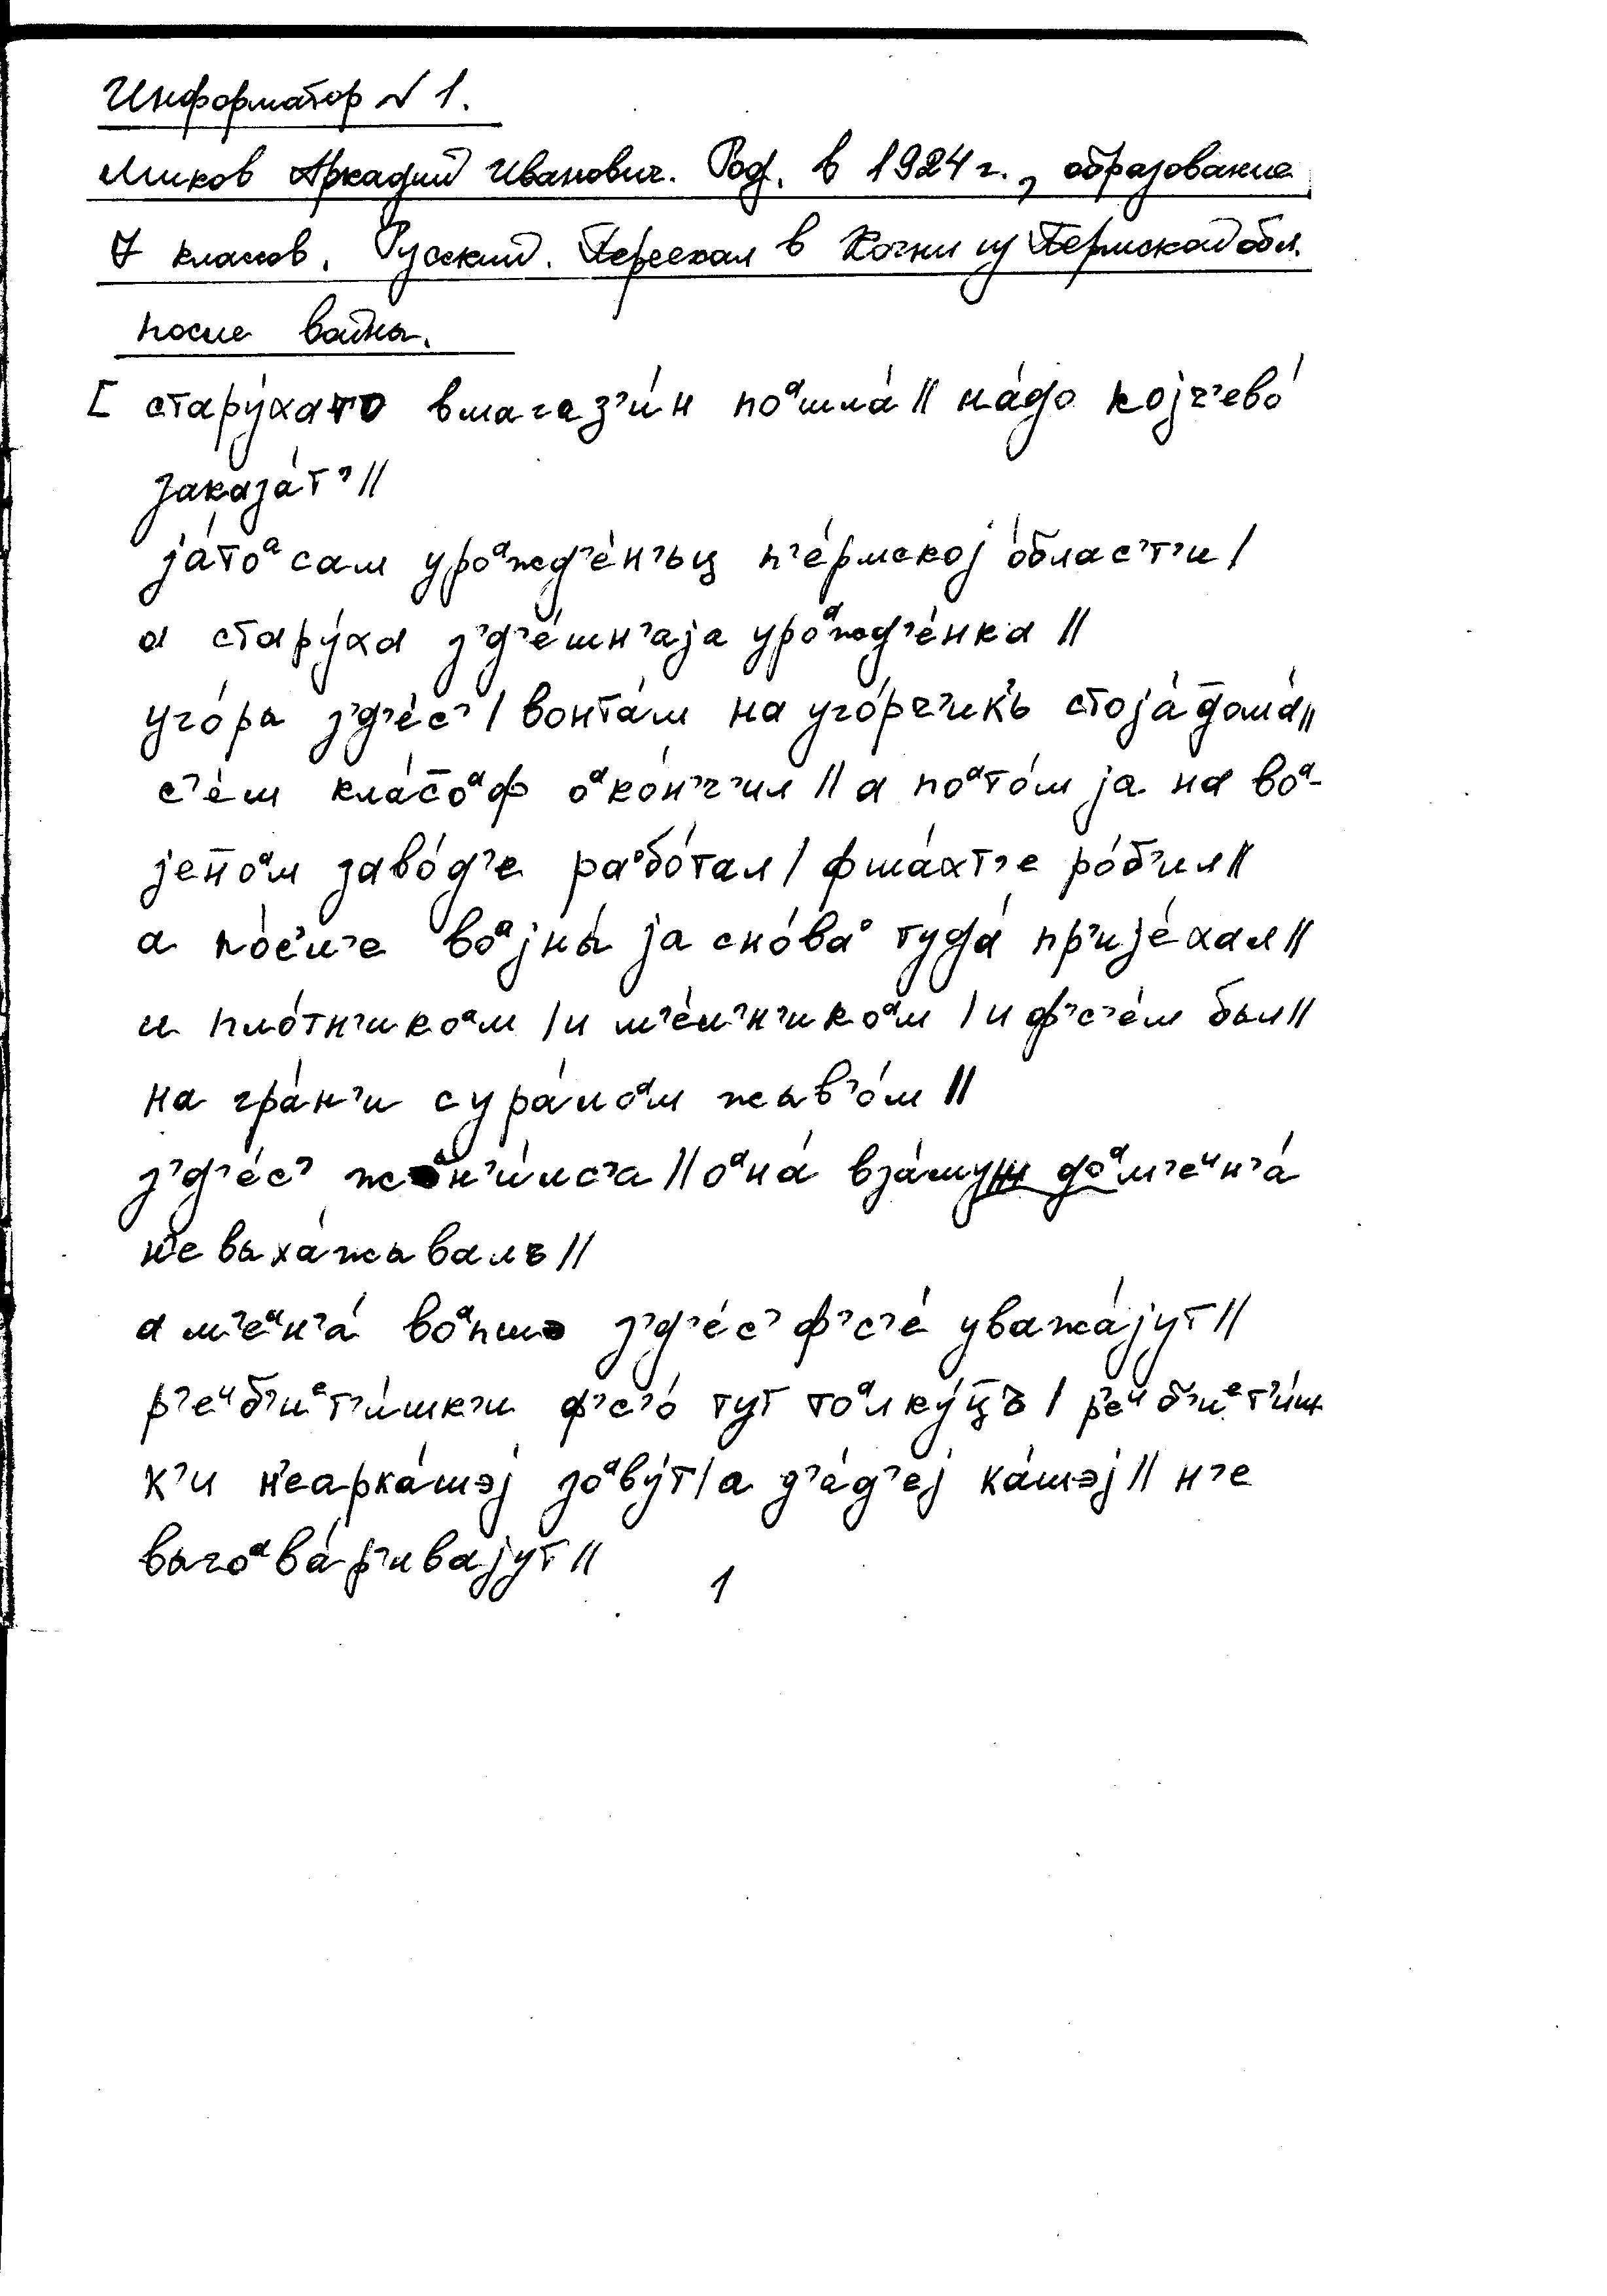 Информатор N 1.
Миков Аркадий Иванович. Род. в 1924 г., образование
7 классов. Русский. Переехал в Кочни из Пермской обл.
после войны.
[ стару́хато вмагаз'и́н поᵃшла́ || на́до којч'ево́
заказа́т' ||
ја́тоᵃ сам уроᵃжд'е́н'ьц п'е́рмској о́блас'т'и |
а стару́ха з'д'е́шн'аја уроᵃжд'е́нка ||
уго́ры з'д'е́с' | вонта́м на уго́рч'ик'ь стоја́ дома́ ||
с'е́м кла́с̄оᵃф оᵃко́н'ч'ил || а поᵃто́м ја на воᵃ-
јен̄оᵃм заво́д'е раᵒбо́тал | фша́хт'е ро́б'ил ||
а по́с'л'е воᵃјны́ ја сно́ваᵒ туда́ пр'ије́хал ||
и пло́тн'икоᵃм | и м'е́л'н'икоᵃм | и ф'с'е́м был ||
на гра́н'и сура́лоᵃм жыв'о́м ||
з'д'е́с' жэн'и́лс'а || оᵃна́ вза́муж доᵃм'еᶦн'а́
н'е выха́жывалъ ||
а м'еᵃн'а́ воᵃпшэ з'д'е́с' ф'с'е́ уважа́јут ||
р'еᶦб'иᵉт'и́шк'и ф'с'о́ тут тоᵃлку́ц̄ъ | р'еᶦб'иᵉт'и́ш
к'и н'еарка́шэј зоᵃву́т | а д'а́д'еј ка́шэј || н'е
выгоᵃва́р'ивајут ||
1